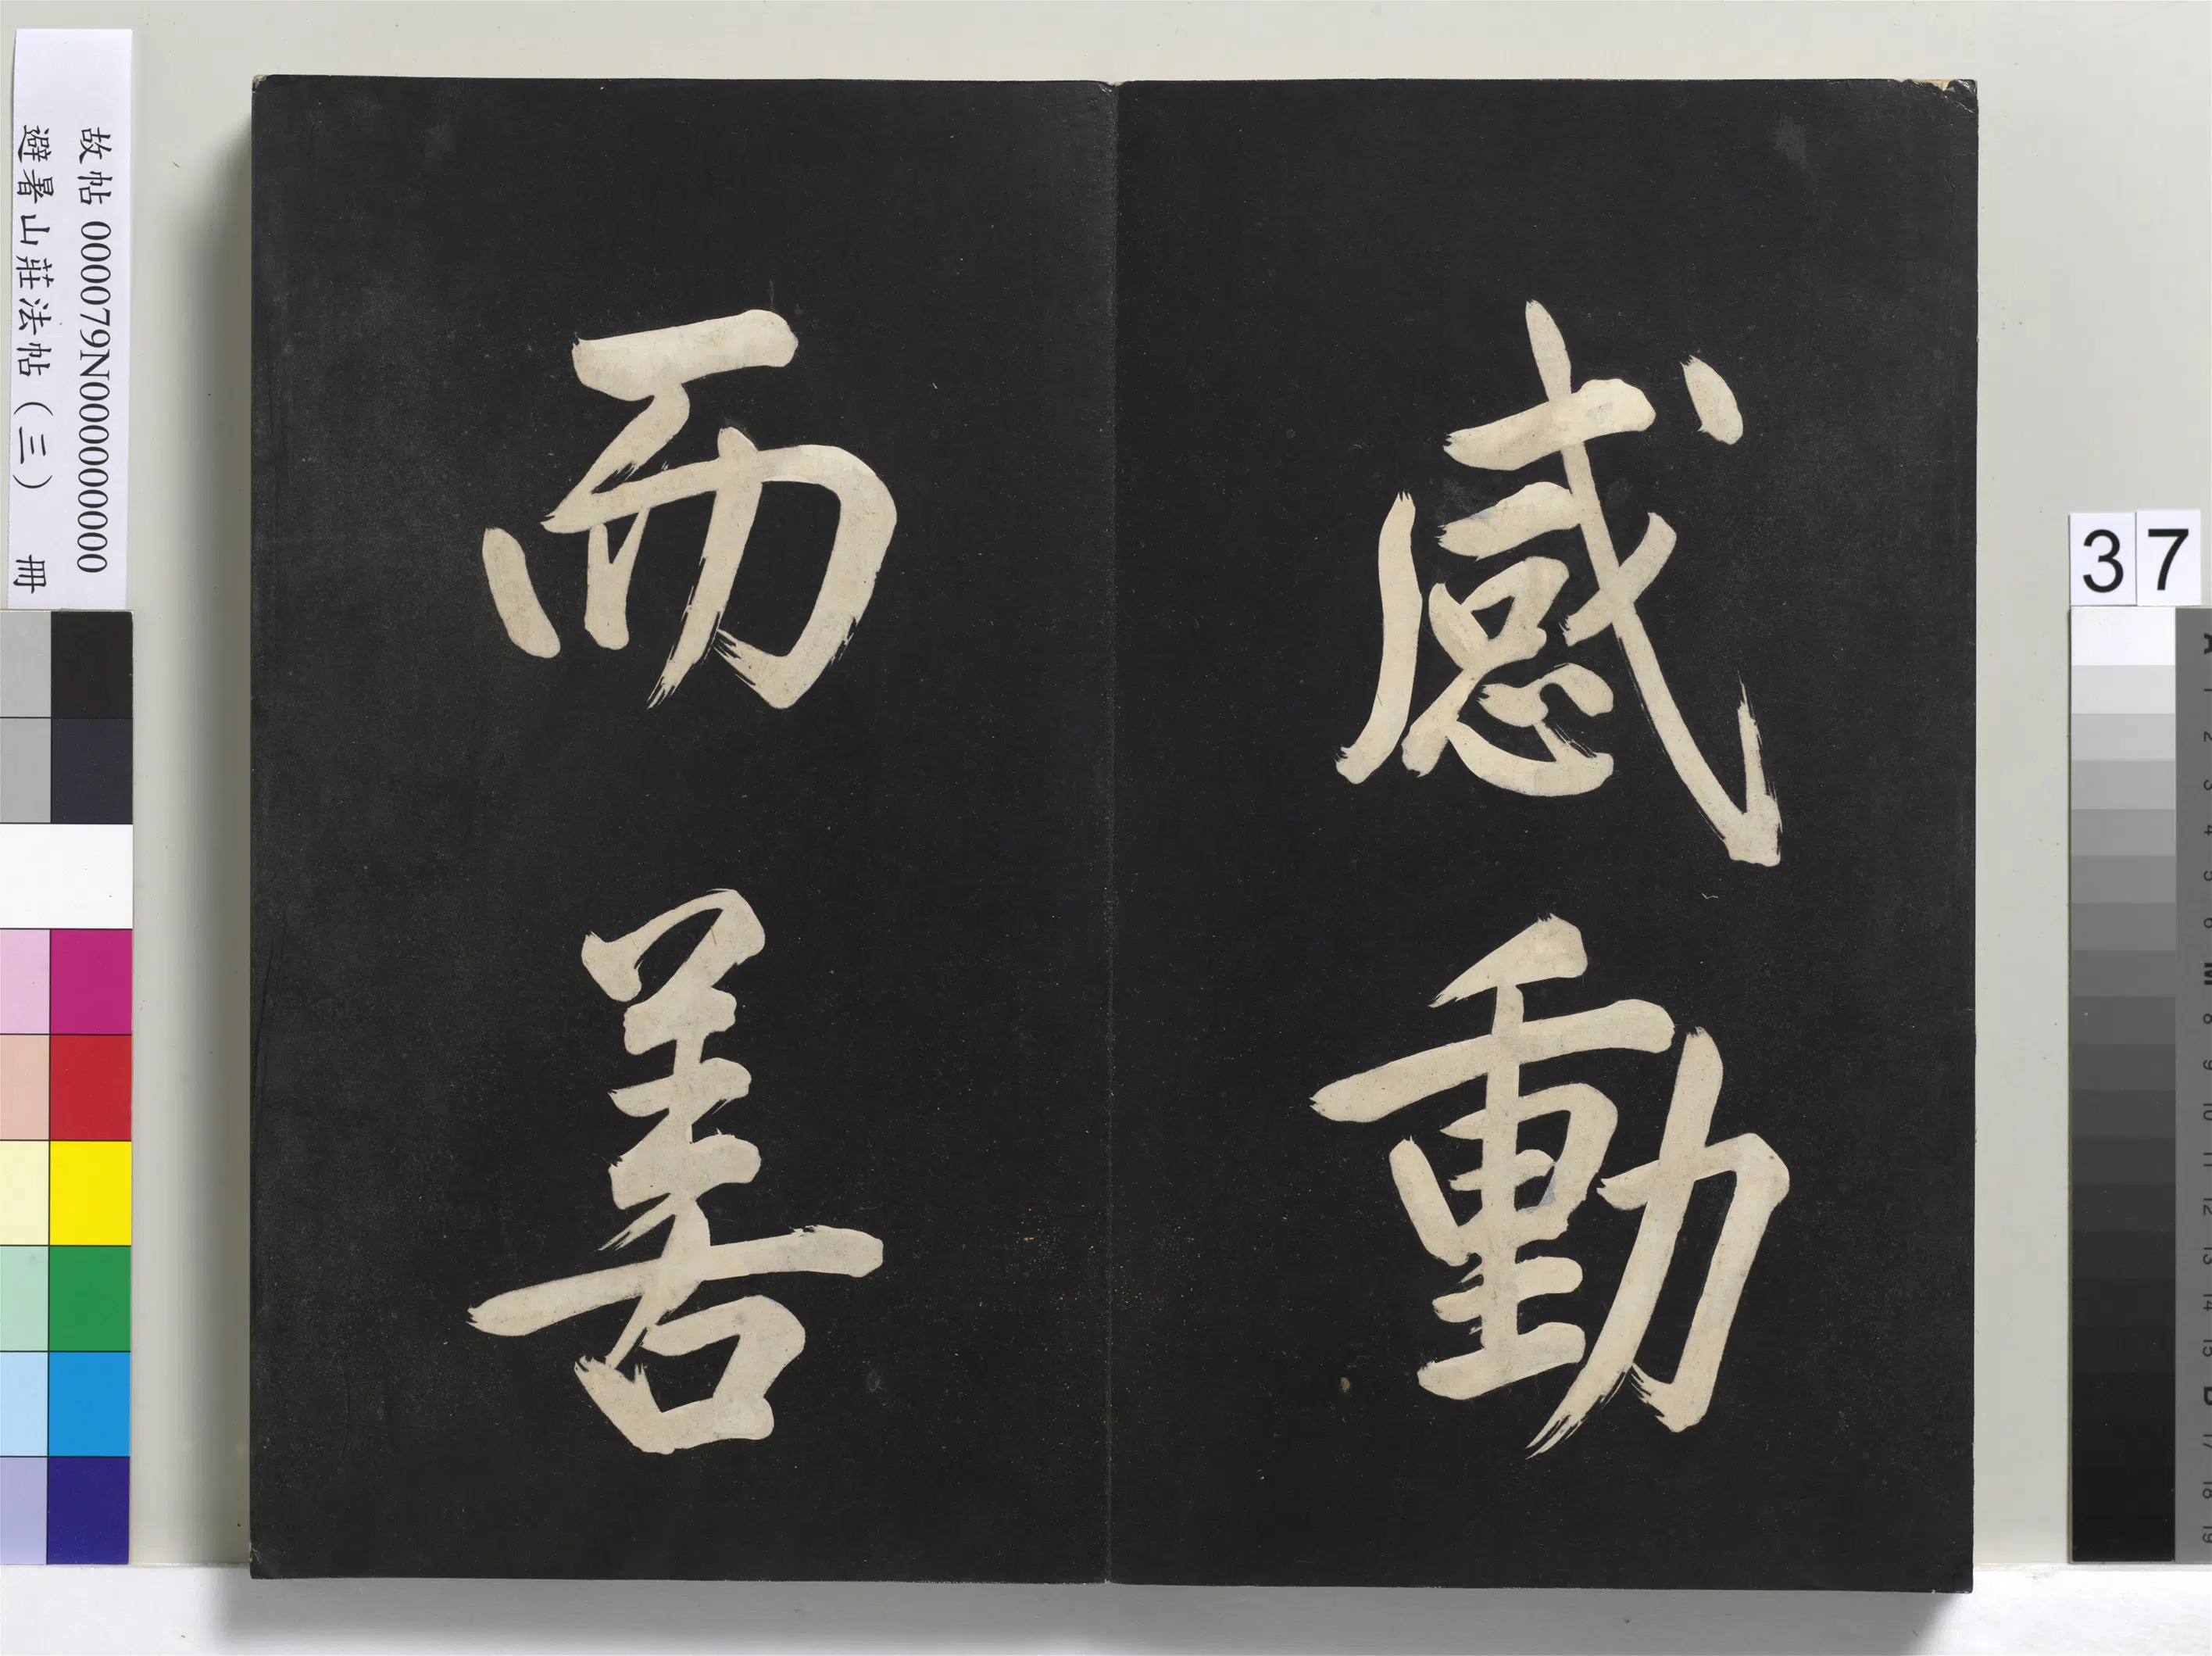 感動
而善
故帖 000079N000000000
避暑山莊法帖（三） 冊
37
A
1
2
3
4
5
6
M
8
9
10
11
12
13
14
15
B
17
18
19